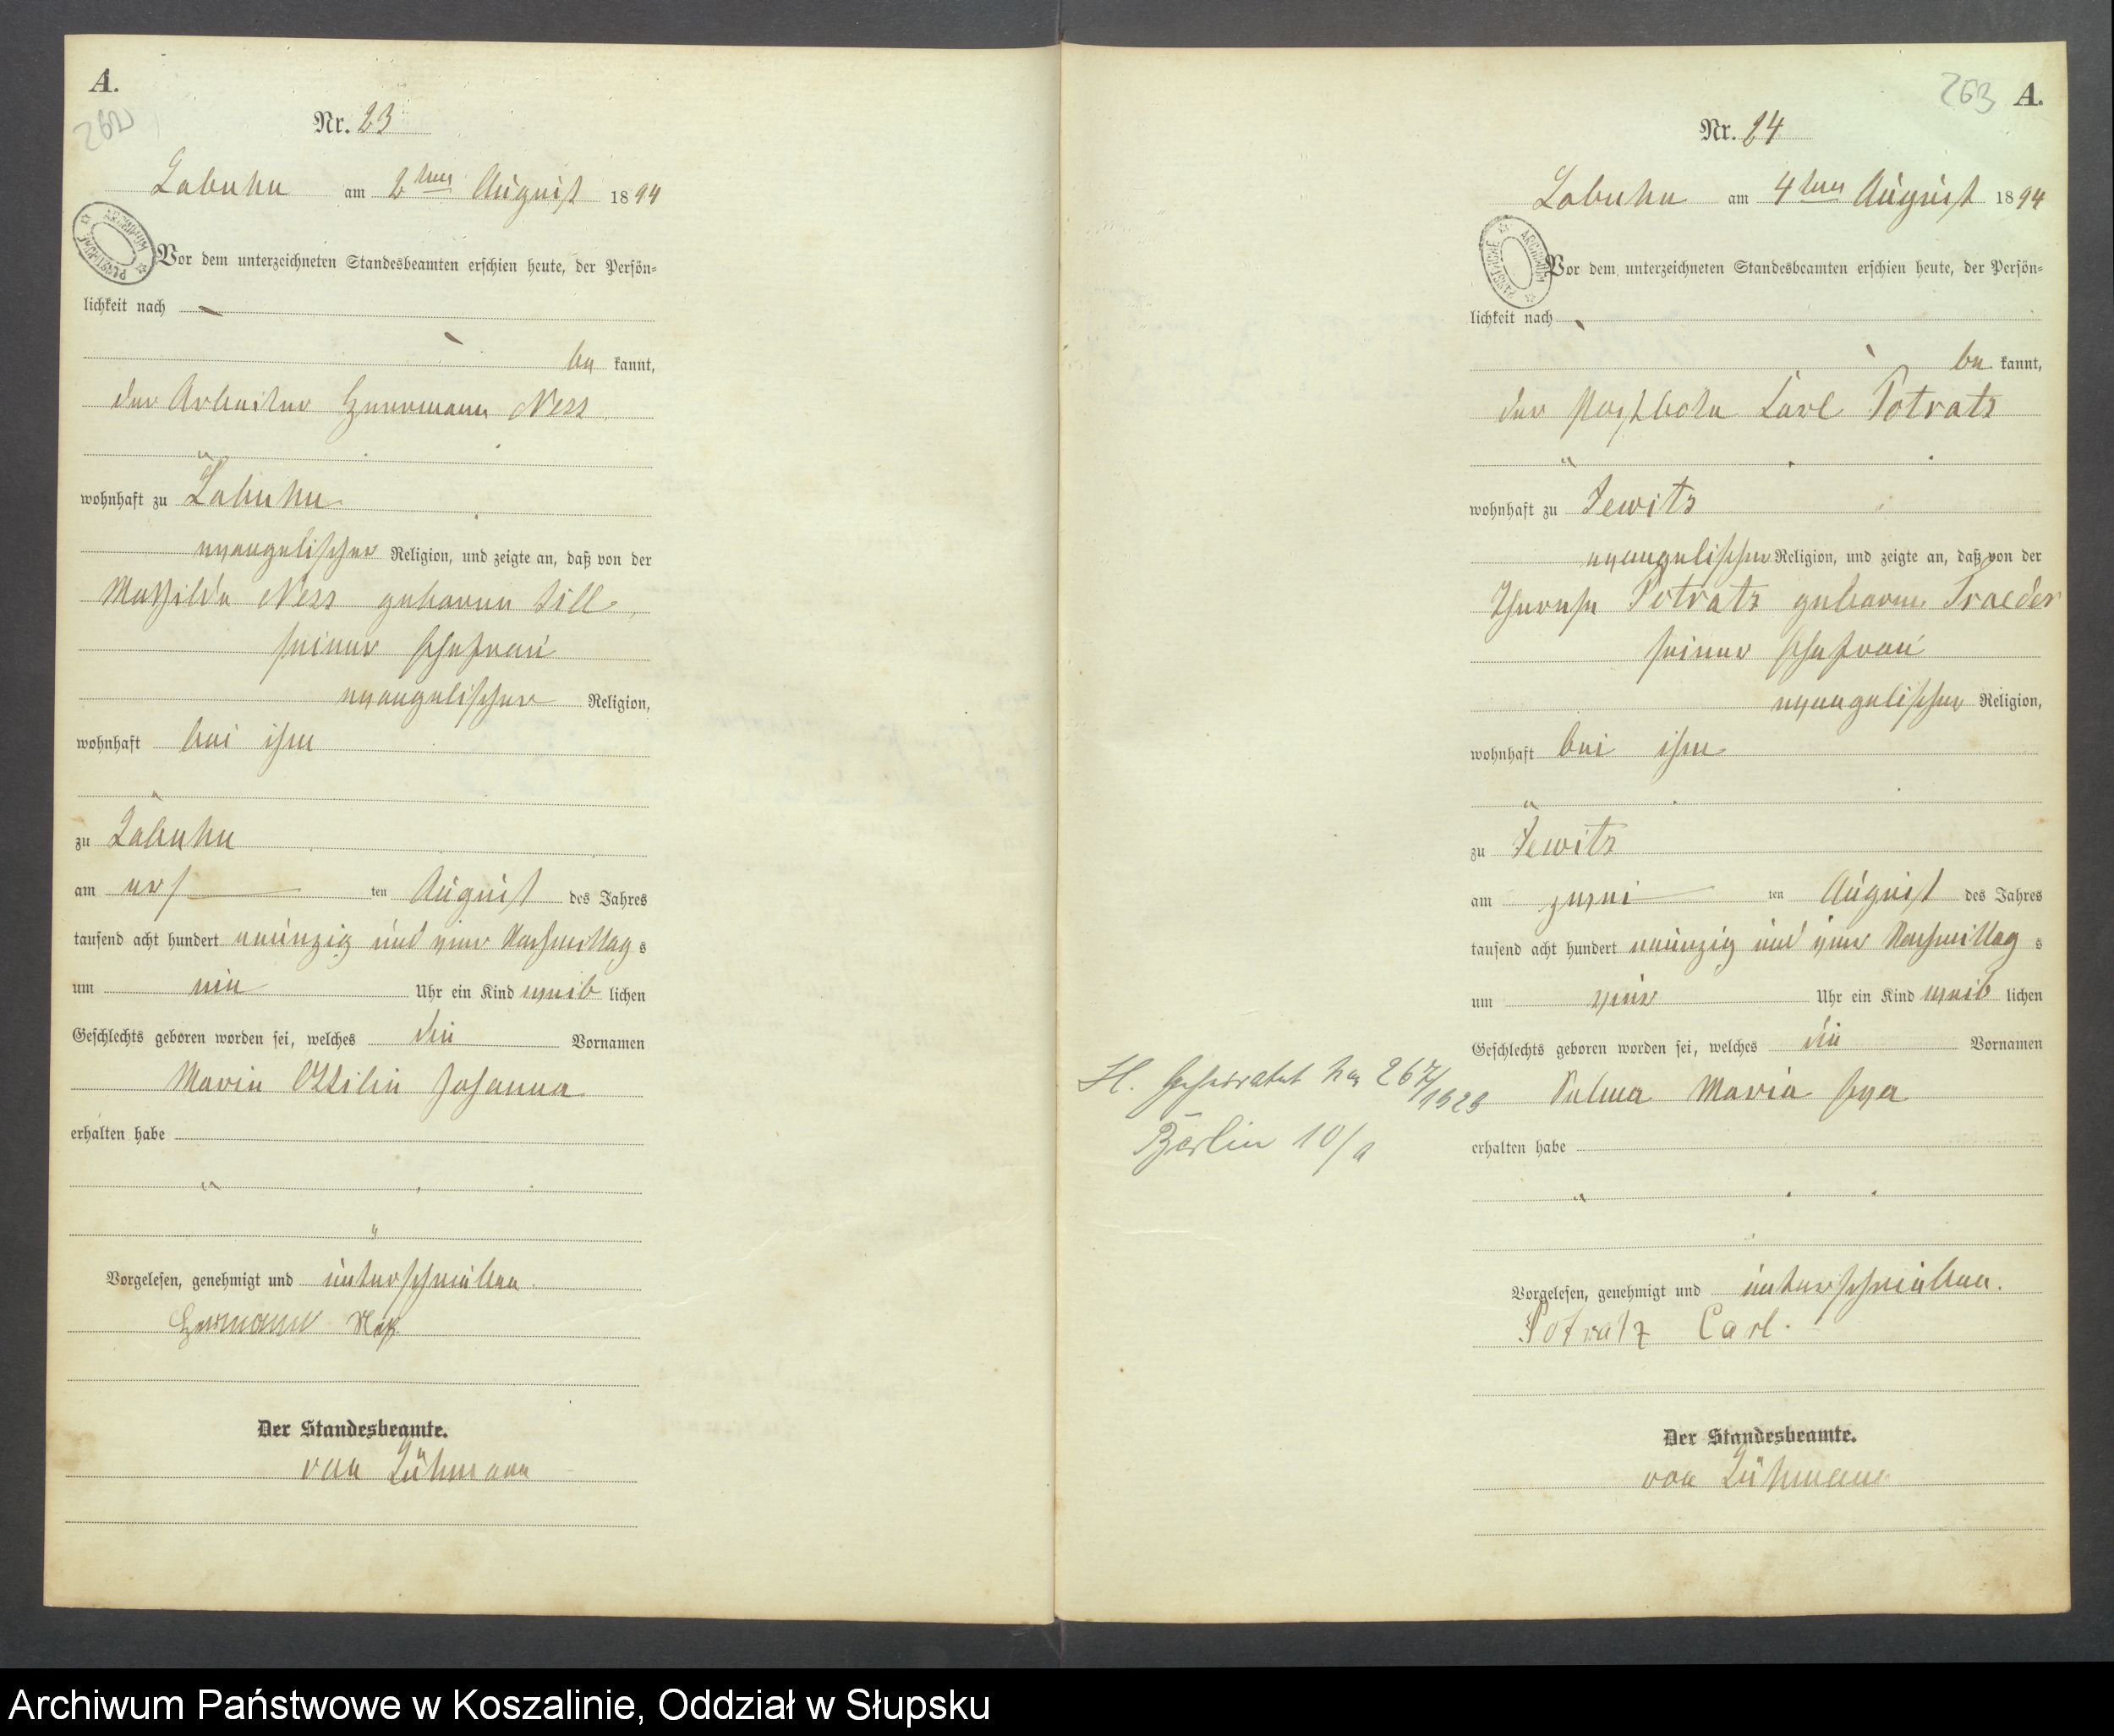 A.
262
Nr. 23
Labuhn am 2ten August 1894
ARCHIWUM PAŃSTWOWE
Vor dem unterzeichneten Standesbeamten erschien heute, der Persön=
lichkeit nach
be kannt,
der Arbeiter Herrmann Ness
wohnhaft zu Labuhn
evangelischer Religion, und zeigte an, daß von der
Mathilde Ness geborenen Sill
seiner Ehefrau
evangelischer Religion,
wohnhaft bei ihm
zu Labuhn
am erst ten August des Jahres
tausend acht hundert neunzig und vier Nachmittag s
um ein Uhr ein Kind weib lichen
Geschlechts geboren worden sei, welches die Vornamen
Marie Ottilie Johanna
erhalten habe
Vorgelesen, genehmigt und unterschrieben
Herrmann Neß
Der Standesbeamte.
von Lühmann
263
A.
Nr. 24
Labuhn am 4ten August 1894
ARCHIWUM PAŃSTWOWE
Vor dem unterzeichneten Standesbeamten erschien heute, der Persön=
lichkeit nach
be kannt,
der Postbote Carl Potratz
wohnhaft zu Jewitz
evangelischer Religion, und zeigte an, daß von der
Therese Potratz geborne Traeder
seiner Ehefrau
evangelischer Religion,
wohnhaft bei ihm
zu Jewitz
am zwei ten August des Jahres
tausend acht hundert neunzig und vier Nachmittag s
um vier Uhr ein Kind weib lichen
Geschlechts geboren worden sei, welches die Vornamen
Maria Eva
erhalten habe
Vorgelesen, genehmigt und unterschrieben.
Potratz Carl.
Der Standesbeamte.
von Lühmann
H. Geheiratet 26/7 1929
Berlin 10/a
Archiwum Państwowe w Koszalinie, Oddział w Słupsku